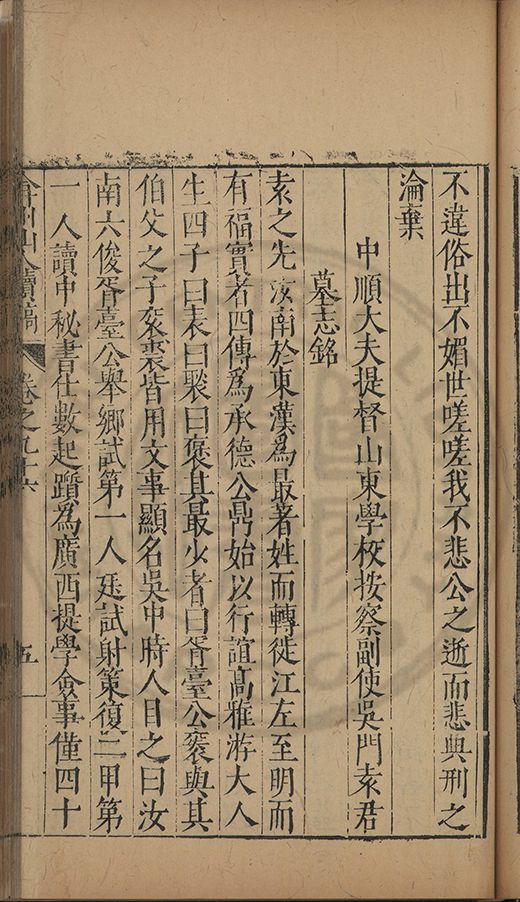 不違俗出不媚世嗟嗟我不悲公之逝而悲典刑之
淪棄
中順大夫提督山東學校按察副使吳門袁君
墓志銘
袁之先汝南於東漢為最著姓而轉徙江左至明而
有福實者四傳為承德公鼎始以行誼高雅游大人
生四子曰表曰褧曰褒其最少者曰胥臺公袠與其
伯父之子袞裘皆用文事顯名吳中時人目之曰汝
南六俊胥臺公舉鄉試第一人廷試射策復二甲第
一人讀中秘書仕數起躓為廣西提學僉事僅四十
弇州山人續稿 卷之九十六 五